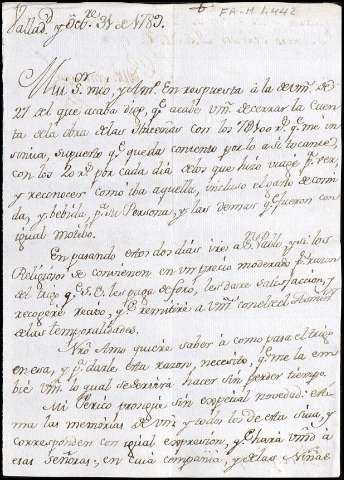 FA-M 4.442
Vallad. y Octre. 31 de 1789.
Mui Sr. mio, y Amo. En respuesta à la de vm. de
27 del que acaba digo, qe. acavè vm. de cerrar la Cuen
ta de la obra de las con los 78400 rs. qe. me in
sinúa, supuesto qe. queda contento por lo a sì tocante,
con los 20 rs. por cada dia de los que hizo viage pa. ver,
y reconocer como iba aquella, incluso el gasto de comi
da, y bebida, pa. su Persona, y las demas qe. fueron con
igual motibo.
En pasando estos dos dias irè a Sn. Pablo, y si los
Religiosos se convienen en un precio moderado pr. razon
del trigo qe. S.E. les paga de foro, les darè satisfaccion, y
recogerè recivo, qe. remitirè a vm. con el del
de las temporalidades.
Nrõ Amo quiere saber à como pasa el trigo
en esa, y pa. darle esta razon, necesito, qe. me la em
bie vm. lo qual se servirà hacer sin perder tiempo.
Mi Perico prosigue sin especial novedad: esti
ma las memorias de vm. y todos los de esta Suia, y
corresponden con igual expresion, qe. harà vmd. à
esas Señoras, en cuia compañia, y de las Niñas